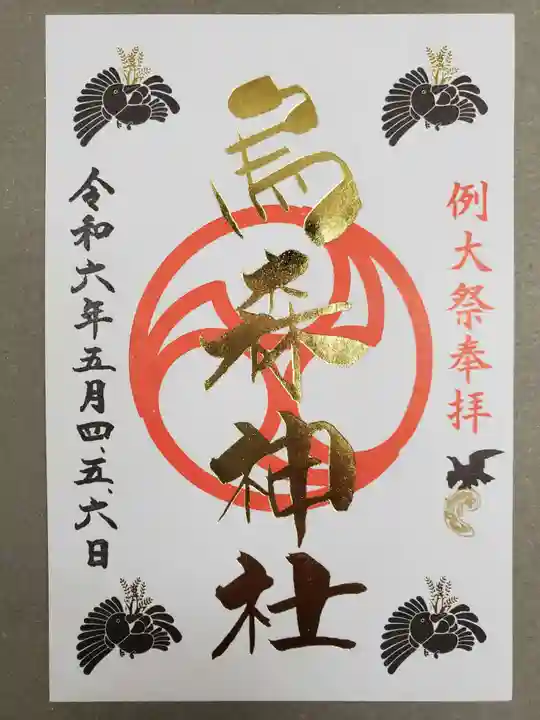 例大祭奉拝
烏森神社
令和六年五月四、五、六日